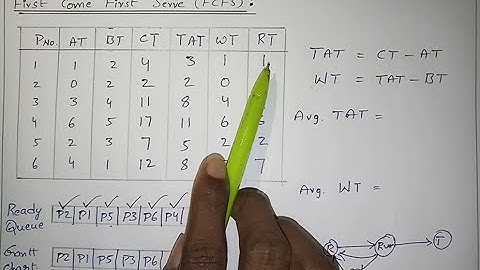 First Come First Serve (FCFS):
PNo. AT BT CT TAT WT RT
1 1 2 4 3 1 1
2 0 2 2 2 0
3 3 4 11 8 4
4 6 5 17 11 6
5 2 3 7 5 2 2
6 4 1 12 8 7
TAT = CT - AT
WT = TAT - BT
Avg. TAT =
Avg. WT =
Ready Queue P2 P1 P5 P3 P6 P4
Gantt Chart P2 P1 P5 P3 P6
R Run T